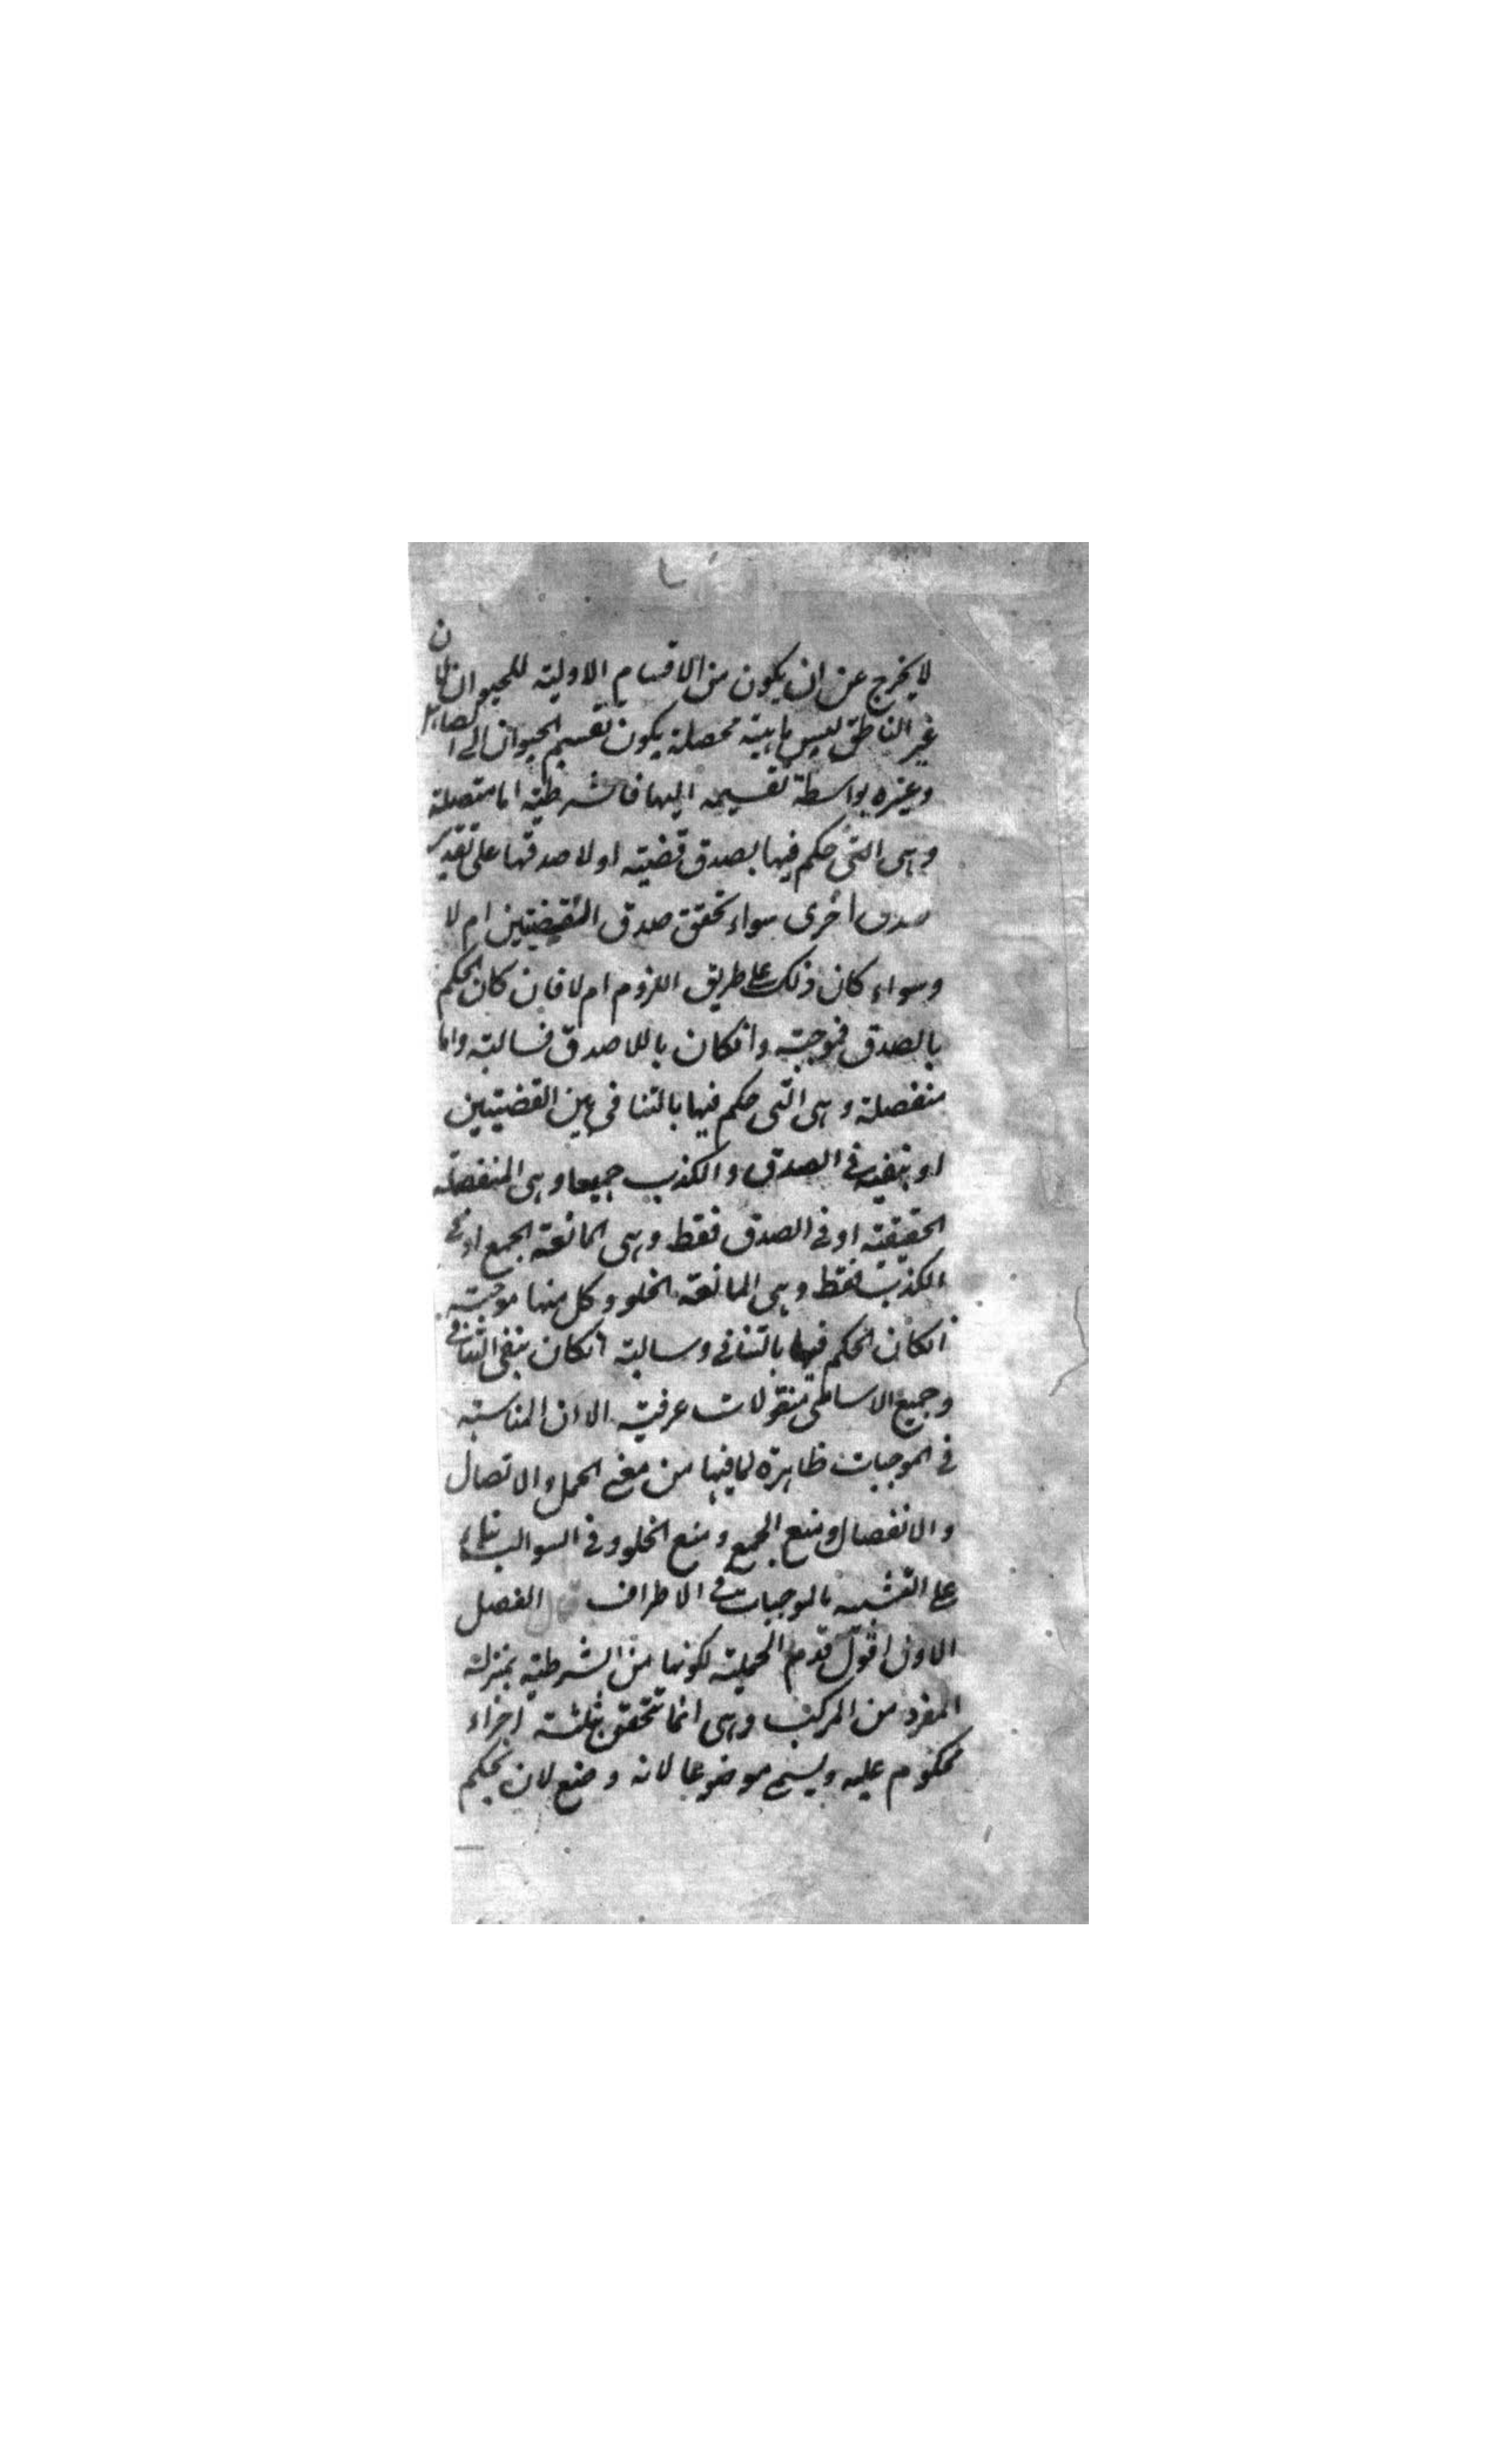 لا يخرج عن ان يكون من الاقسام الاولية للحيوان فان
غير الناطق ليس ماهية محصلة يكون تقسيم الحيوان الى الصاهل
وغيره بواسطة تقسيمه اليها فالشرطية اما متصلة
وهى التى حكم فيها بصدق قضية اولا صدقها على تقدير
صدق اخرى سواء تحقق صدق القضيتين ام لا
وسواء كان ذلك على طريق اللزوم ام لا فان كان الحكم
بالصدق فموجبة وانكان باللاصدق فسالبة واما
منفصلة وهى التى حكم فيها بالتنافى بين القضيتين
او بنفيه فى الصدق والكذب جميعا وهى المنفصلة
الحقيقية او فى الصدق فقط وهى المانعة الجمع او فى
الكذب فقط وهى المانعة الخلو وكل منها موجبة
انكان الحكم فيها بالتنافى وسالبة انكان بنفى التنافى
وجميع الاسامى منقولات عرفية الا ان المناسبة
فى الموجبات ظاهرة لما فيها من معنى الحمل والاتصال
والانفصال ومنع الجمع ومنع الخلو وفى السوالب بناء
على التشبيه بالموجبات فى الاطراف قال الفصل
الاول اقول قدم الحملية لكونها من الشرطية بمنزلة
المفرد من المركب وهى انما تتحقق بثلثة اجزاء
محكوم عليه ويسمى موضوعا لانه وضع لان يحكم